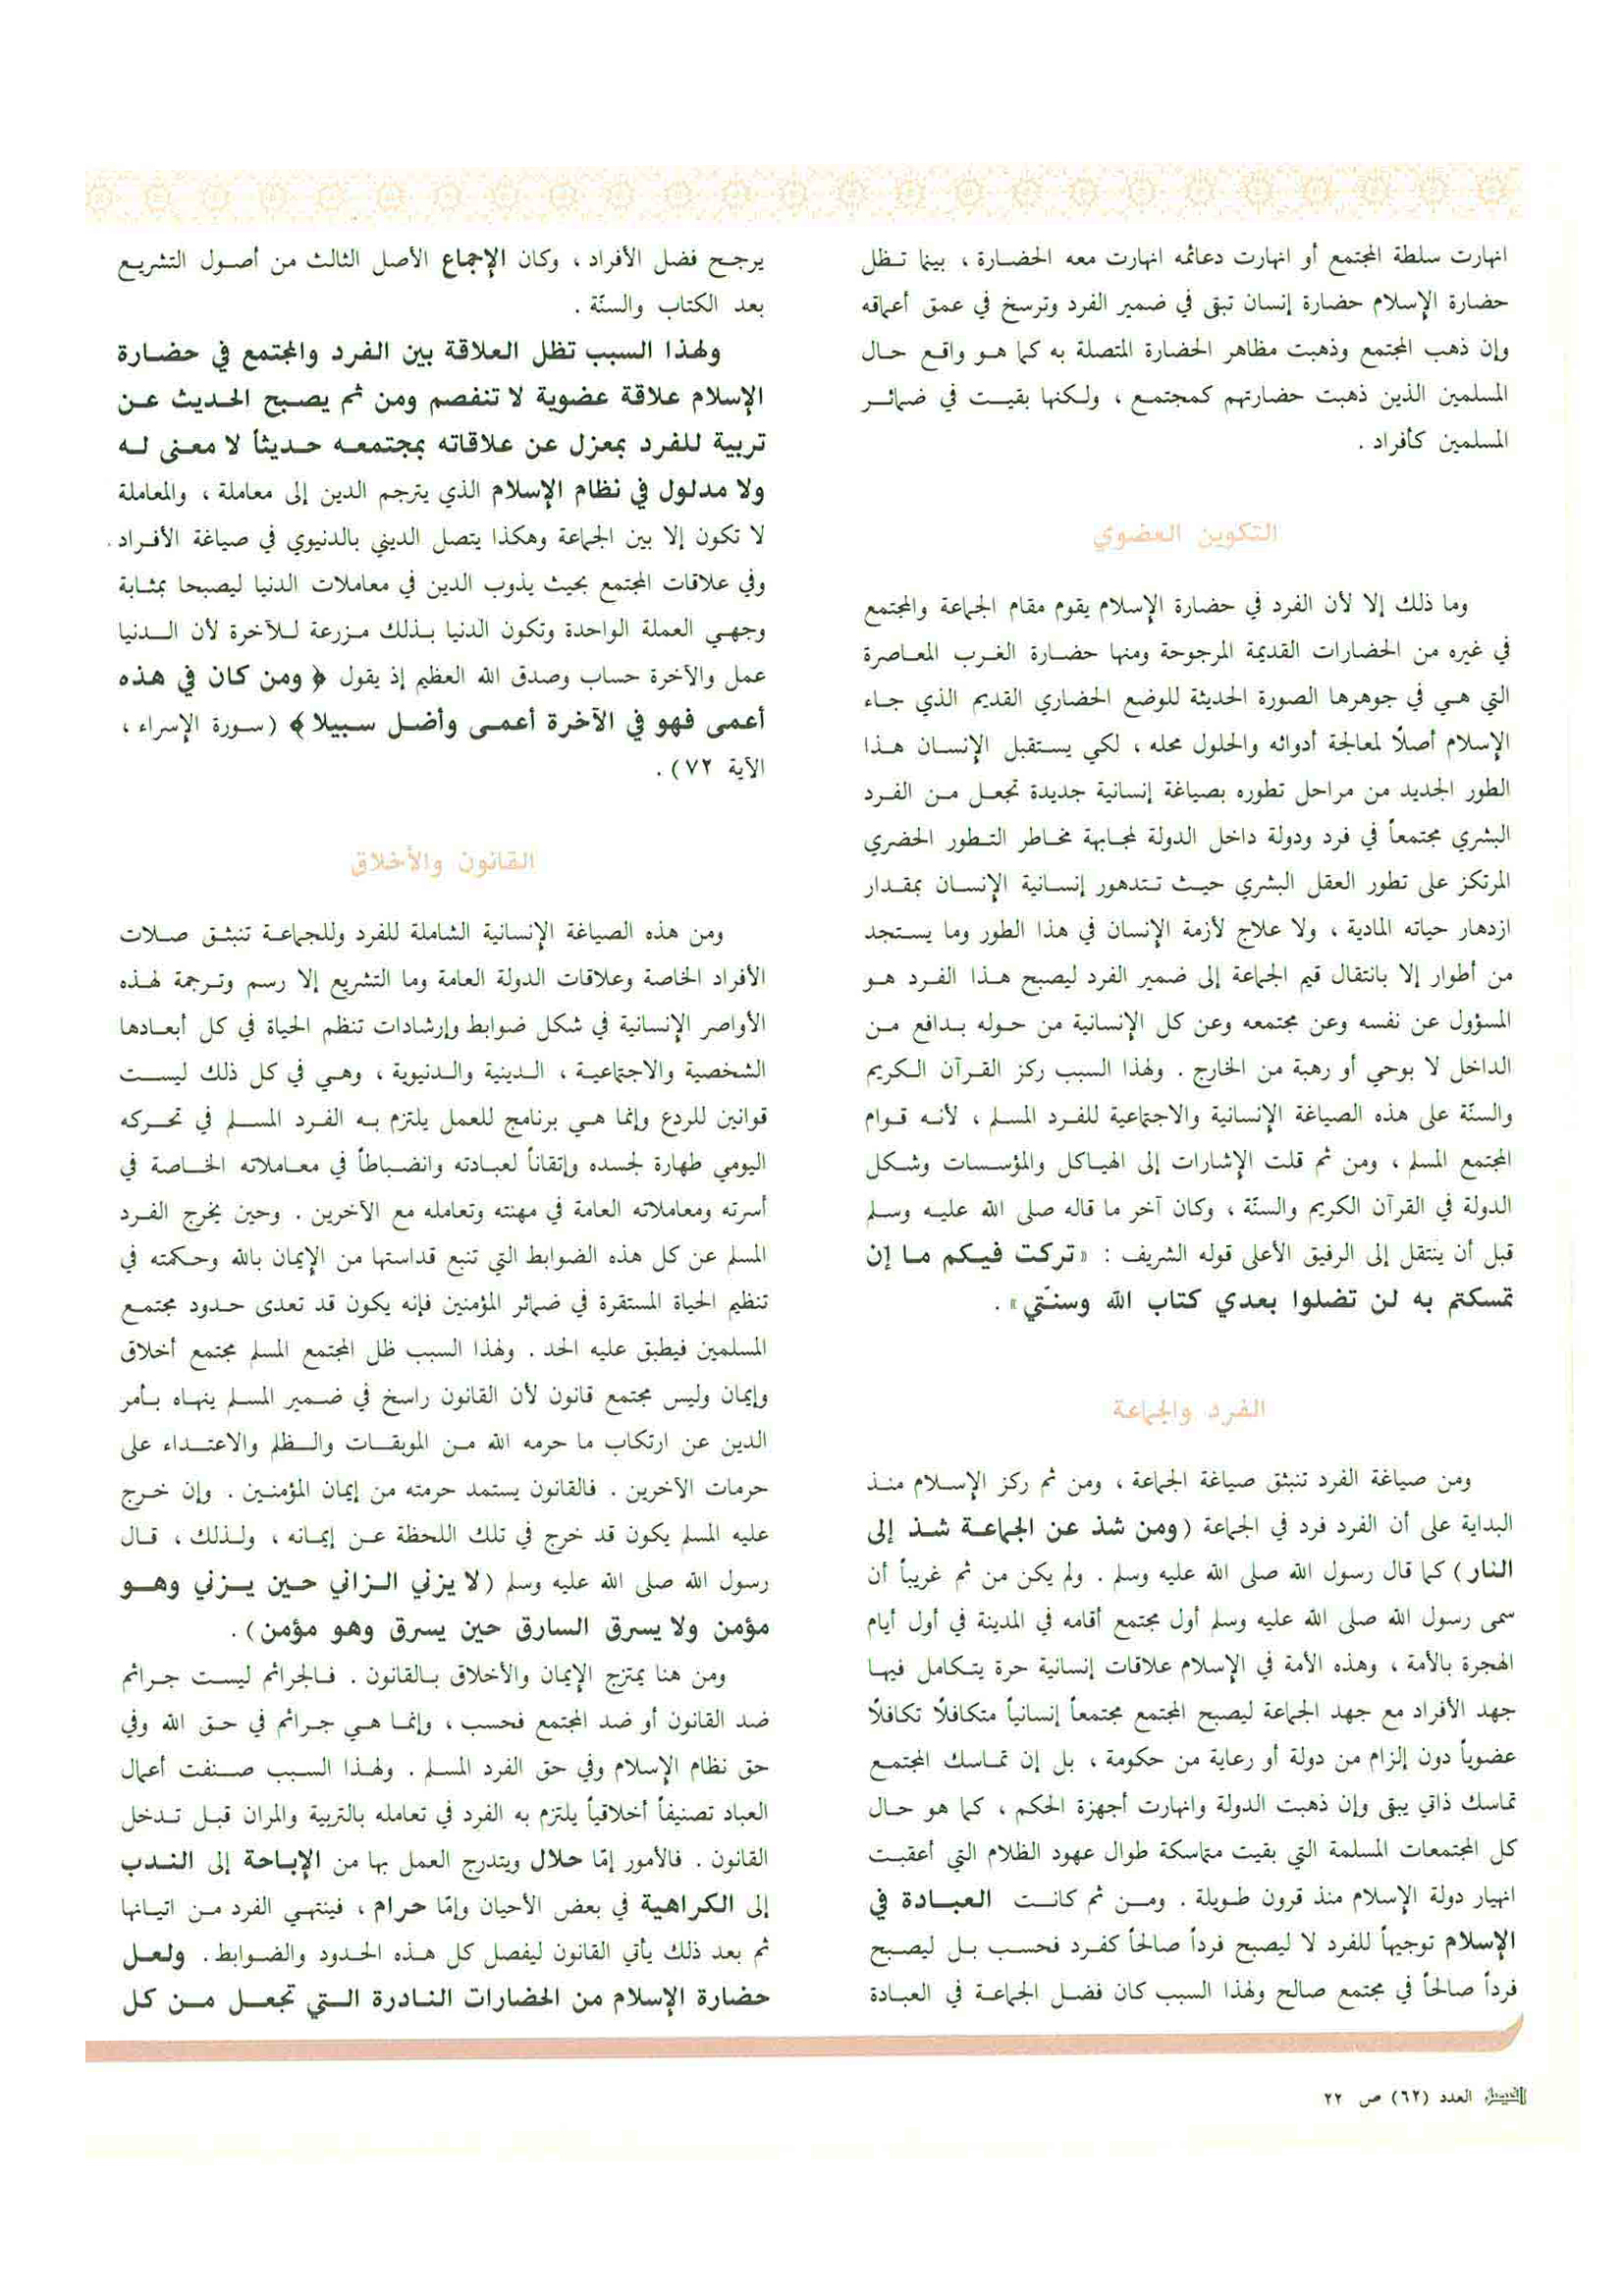 انهارت سلطة المجتمع أو انهارت دعائمه انهارت معه الحضارة ، بينما تظل
حضارة الإسلام حضارة إنسان تبقى في ضمير الفرد وترسخ في عمق أعماقه
وإن ذهب المجتمع وذهبت مظاهر الحضارة المتصلة به كما هو واقع حال
المسلمين الذين ذهبت حضارتهم كمجتمع ، ولكنها بقيت في ضمائر
المسلمين كأفراد .
التكوين العضوي
وما ذلك إلا لأن الفرد في حضارة الإسلام يقوم مقام الجماعة والمجتمع
في غيره من الحضارات القديمة المرجوحة ومنها حضارة الغرب المعاصرة
التي هي في جوهرها الصورة الحديثة للوضع الحضاري القديم الذي جاء
الإسلام أصلاً لمعالجة أدوائه والحلول محله ، لكي يستقبل الإنسان هذا
الطور الجديد من مراحل تطوره بصياغة إنسانية جديدة تجعل من الفرد
البشري مجتمعاً في فرد ودولة داخل الدولة لمجابهة مخاطر التطور الحضري
المرتكز على تطور العقل البشري حيث تتدهور إنسانية الإنسان بمقدار
ازدهار حياته المادية ، ولا علاج لأزمة الإنسان في هذا الطور وما يستجد
من أطوار إلا بانتقال قيم الجماعة إلى ضمير الفرد ليصبح هذا الفرد هو
المسؤول عن نفسه وعن مجتمعه وعن كل الإنسانية من حوله بدافع من
الداخل لا بوحي أو رهبة من الخارج . ولهذا السبب ركز القرآن الكريم
والسنّة على هذه الصياغة الإنسانية والاجتماعية للفرد المسلم ، لأنه قوام
المجتمع المسلم ، ومن ثم قلت الإشارات إلى الهياكل والمؤسسات وشكل
الدولة في القرآن الكريم والسنّة ، وكان آخر ما قاله صلى الله عليه وسلم
قبل أن ينتقل إلى الرفيق الأعلى قوله الشريف : «تركت فيكم ما إن
تمسكتم به لن تضلوا بعدي كتاب الله وسنّتي» .
الفرد والجماعة
ومن صياغة الفرد تنبثق صياغة الجماعة ، ومن ثم ركز الإسلام منذ
البداية على أن الفرد فرد في الجماعة (ومن شذ عن الجماعة شذ إلى
النار) كما قال رسول الله صلى الله عليه وسلم . ولم يكن من ثم غريباً أن
سمى رسول الله صلى الله عليه وسلم أول مجتمع أقامه في المدينة في أول أيام
الهجرة بالأمة ، وهذه الأمة في الإسلام علاقات إنسانية حرة يتكامل فيها
جهد الأفراد مع جهد الجماعة ليصبح المجتمع مجتمعاً إنسانياً متكافلاً تكافلاً
عضوياً دون إلزام من دولة أو رعاية من حكومة ، بل إن تماسك المجتمع
تماسك ذاتي يبقى وإن ذهبت الدولة وانهارت أجهزة الحكم ، كما هو حال
كل المجتمعات المسلمة التي بقيت متماسكة طوال عهود الظلام التي أعقبت
انهيار دولة الإسلام منذ قرون طويلة . ومن ثم كانت العبادة في
الإسلام توجيهاً للفرد لا ليصبح فرداً صالحاً كفرد فحسب بل ليصبح
فرداً صالحاً في مجتمع صالح ولهذا السبب كان فضل الجماعة في العبادة
يرجح فضل الأفراد ، وكان الإجماع الأصل الثالث من أصول التشريع
بعد الكتاب والسنّة .
ولهذا السبب تظل العلاقة بين الفرد والمجتمع في حضارة
الإسلام علاقة عضوية لا تنفصم ومن ثم يصبح الحديث عن
تربية للفرد بمعزل عن علاقاته بمجتمعه حديثاً لا معنى له
ولا مدلول في نظام الإسلام الذي يترجم الدين إلى معاملة ، والمعاملة
لا تكون إلا بين الجماعة وهكذا يتصل الديني بالدنيوي في صياغة الأفراد .
وفي علاقات المجتمع بحيث يذوب الدين في معاملات الدنيا ليصبحا بمثابة
وجهي العملة الواحدة وتكون الدنيا بذلك مزرعة للآخرة لأن الدنيا
عمل والآخرة حساب وصدق الله العظيم إذ يقول ﴿ ومن كان في هذه
أعمى فهو في الآخرة أعمى وأضل سبيلا ﴾ (سورة الإسراء ،
الآية ٧٢) .
القانون والأخلاق
ومن هذه الصياغة الإنسانية الشاملة للفرد وللجماعة تنبثق صلات
الأفراد الخاصة وعلاقات الدولة العامة وما التشريع إلا رسم وترجمة لهذه
الأواصر الإنسانية في شكل ضوابط وإرشادات تنظم الحياة في كل أبعادها
الشخصية والاجتماعية ، الدينية والدنيوية ، وهي في كل ذلك ليست
قوانين للردع وإنما هي برنامج للعمل يلتزم به الفرد المسلم في تحركه
اليومي طهارة لجسده وإتقاناً لعبادته وانضباطاً في معاملاته الخاصة في
أسرته ومعاملاته العامة في مهنته وتعامله مع الآخرين . وحين يخرج الفرد
المسلم عن كل هذه الضوابط التي تنبع قداستها من الإيمان بالله وحكمته في
تنظيم الحياة المستقرة في ضمائر المؤمنين فإنه يكون قد تعدى حدود مجتمع
المسلمين فيطبق عليه الحد . ولهذا السبب ظل المجتمع المسلم مجتمع أخلاق
وإيمان وليس مجتمع قانون لأن القانون راسخ في ضمير المسلم ينهاه بأمر
الدين عن ارتكاب ما حرمه الله من الموبقات والظلم والاعتداء على
حرمات الآخرين . فالقانون يستمد حرمته من إيمان المؤمنين . وإن خرج
عليه المسلم يكون قد خرج في تلك اللحظة عن إيمانه ، ولذلك ، قال
رسول الله صلى الله عليه وسلم (لا يزني الزاني حين يزني وهو
مؤمن ولا يسرق السارق حين يسرق وهو مؤمن) .
ومن هنا يمتزج الإيمان والأخلاق بالقانون . فالجرائم ليست جرائم
ضد القانون أو ضد المجتمع فحسب ، وإنما هي جرائم في حق الله وفي
حق نظام الإسلام وفي حق الفرد المسلم . ولهذا السبب صنفت أعمال
العباد تصنيفاً أخلاقياً يلتزم به الفرد في تعامله بالتربية والمران قبل تدخل
القانون . فالأمور إمّا حلال ويتدرج العمل بها من الإباحة إلى الندب
إلى الكراهية في بعض الأحيان وإمّا حرام ، فينتهي الفرد من اتيانها
ثم بعد ذلك يأتي القانون ليفصل كل هذه الحدود والضوابط . ولعل
حضارة الإسلام من الحضارات النادرة التي تجعل من كل
الفيصل العدد (٦٢) ص ٢٢